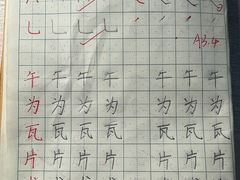 乚 乚 乚 乚
A3.4
午 午 午 午 午 午 午
为 为 为 为 为 为 为
瓦 瓦 瓦 瓦 瓦 瓦 瓦
片 片 片 片 片 片 片